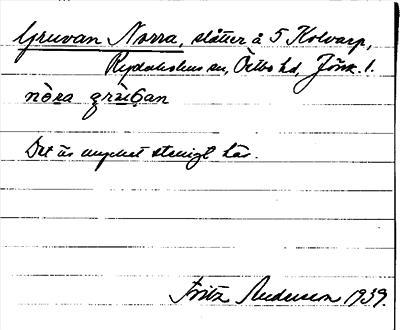 Gruvan Norra, slåtter å 5 Kolvarp,
Rydaholms sn, Östbo hd, Jönk. l.
nòra gräu̯ƀan
Det är mycket stenigt här.
Fritz Anderson 1939.